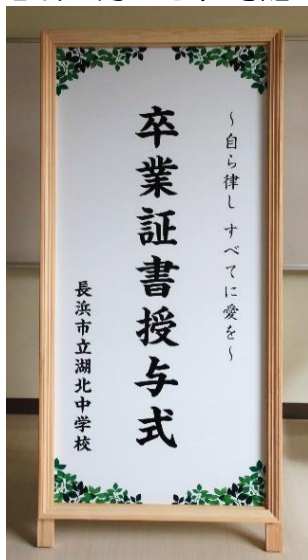 ～自ら律し すべてに愛を～
卒業証書授与式
長浜市立湖北中学校